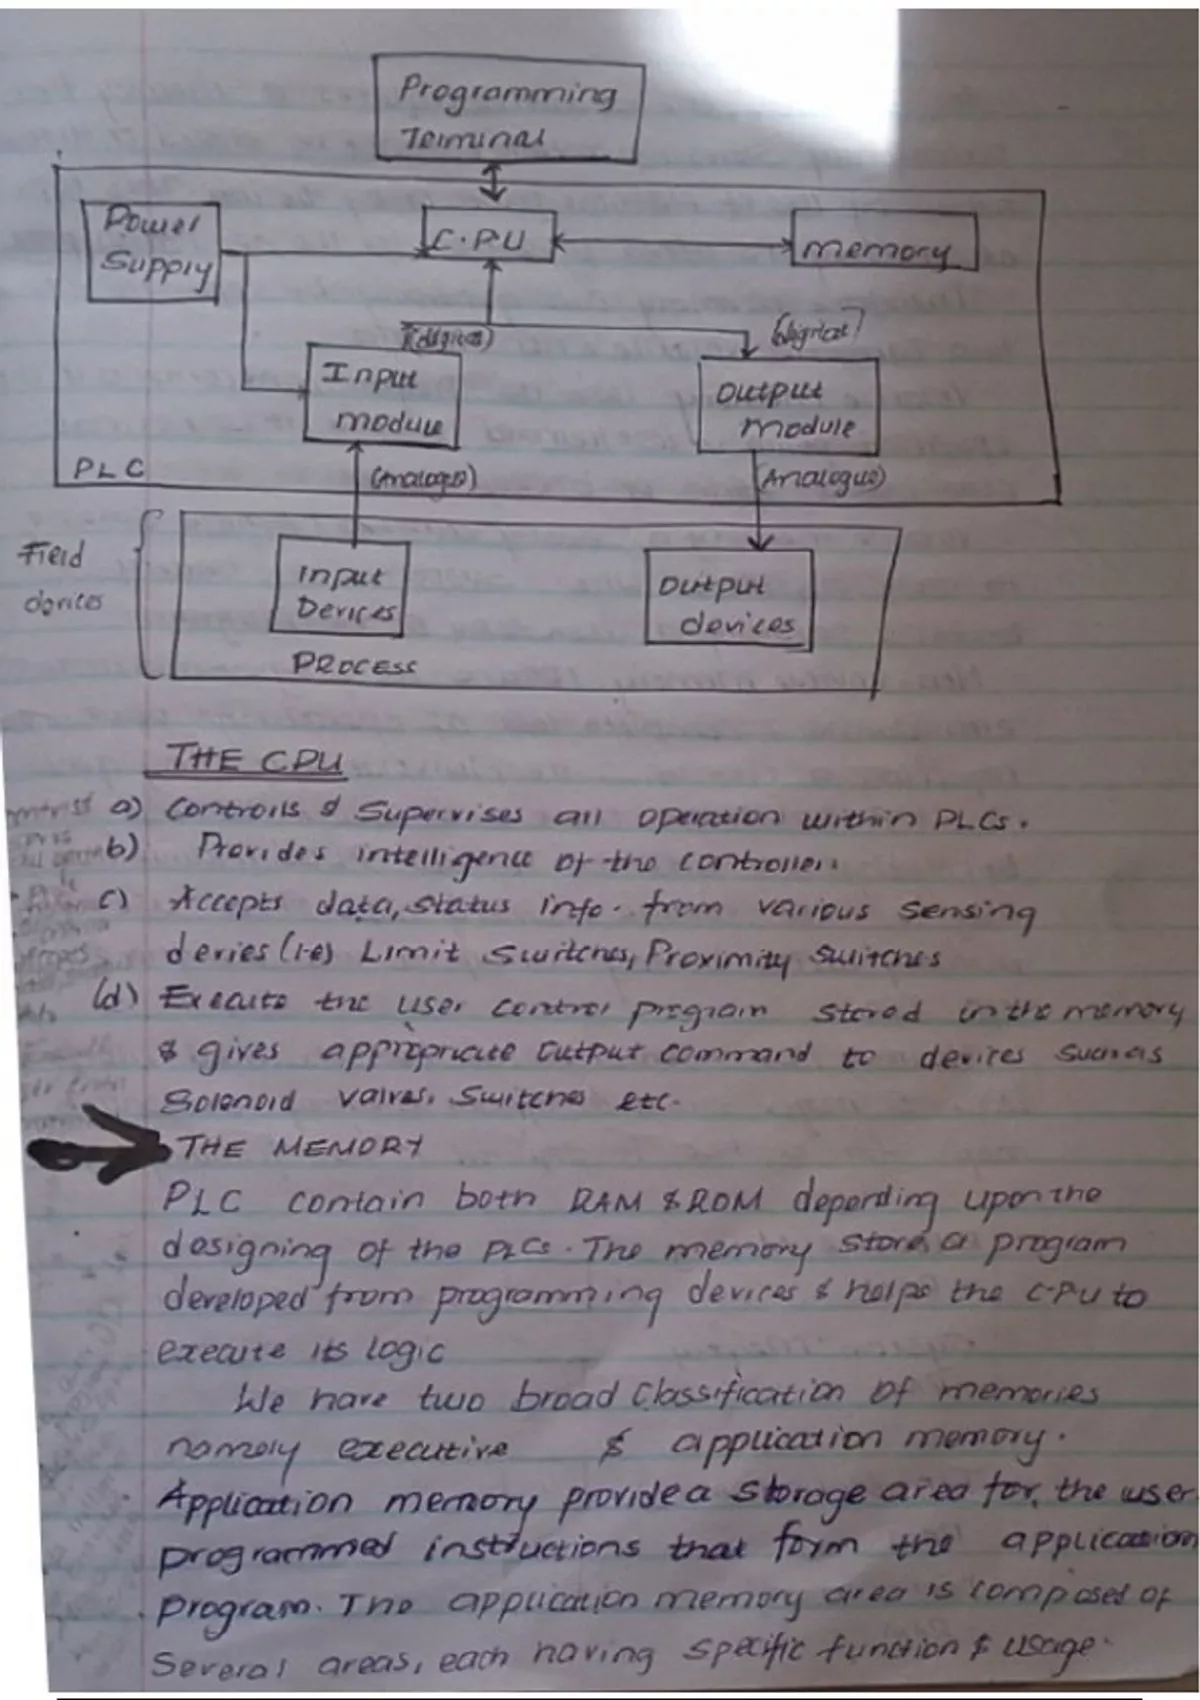 Programming
Terminal
Power
Supply
C.P.U
memory
(digital)
Input
module
Output
module
PLC
(Analogue)
(Analogue)
Field
devices
Input
Devices
Output
devices
PROCESS
THE CPU
a) Controlls & Supervises all operation within PLCs.
b) Provides intelligence of the controller.
c) Accepts data, status info. from various sensing
devies (i.e) Limit Switches, Proximity switches
(d) Execute the user control program stored in the memory
& gives appropriate output command to devices such as
Solenoid valves, Switches etc.
THE MEMORY
PLC contain both RAM & ROM depending upon the
designing of the PLCs. The memory store a program
developed from programming devices & helps the C.P.U to
execute its logic
We have two broad Classification of memories
namely executive & application memory.
Application memory provide a storage area for the user
programmed instructions that form the application
program. The application memory area is composed of
Several areas, each having specific function & usage.